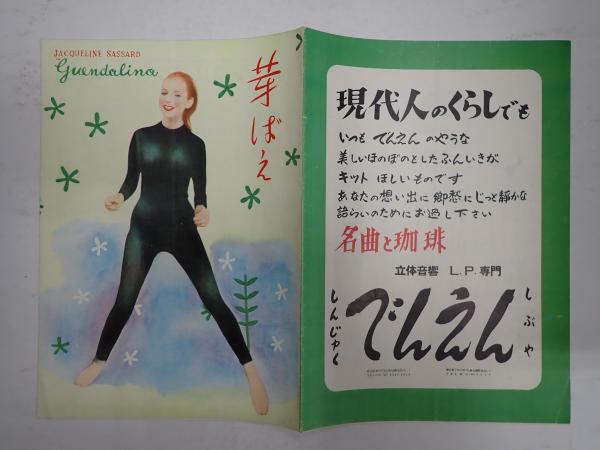 JACQUELINE SASSARD
Guendalina
芽ばえ
現代人のくらしでも
いつも でんえん のやうな
美しいほのぼのとしたふんいきが
キット ほしいものです
あなたの想い出に 郷愁にじっと静かな
語らいのためにお過し下さい
名曲と珈琲
立体音響 L.P.専門
しんじゅく
でんえん
しぶや